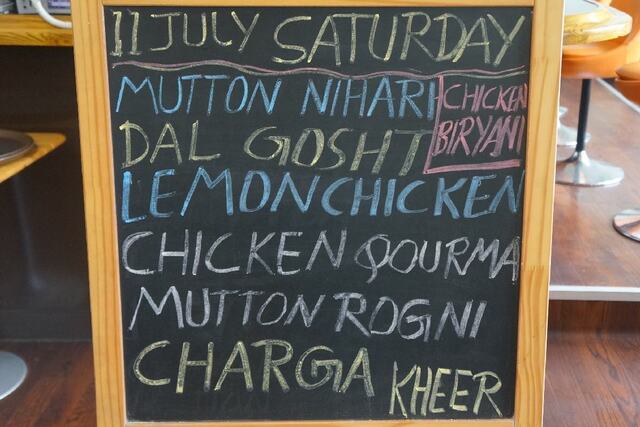 11 JULY SATURDAY
MUTTON NIHARI
CHICKEN
BIRYANI
DAL GOSHT
LEMON CHICKEN
CHICKEN QOURMA
MUTTON ROGNI
CHARGA
KHEER